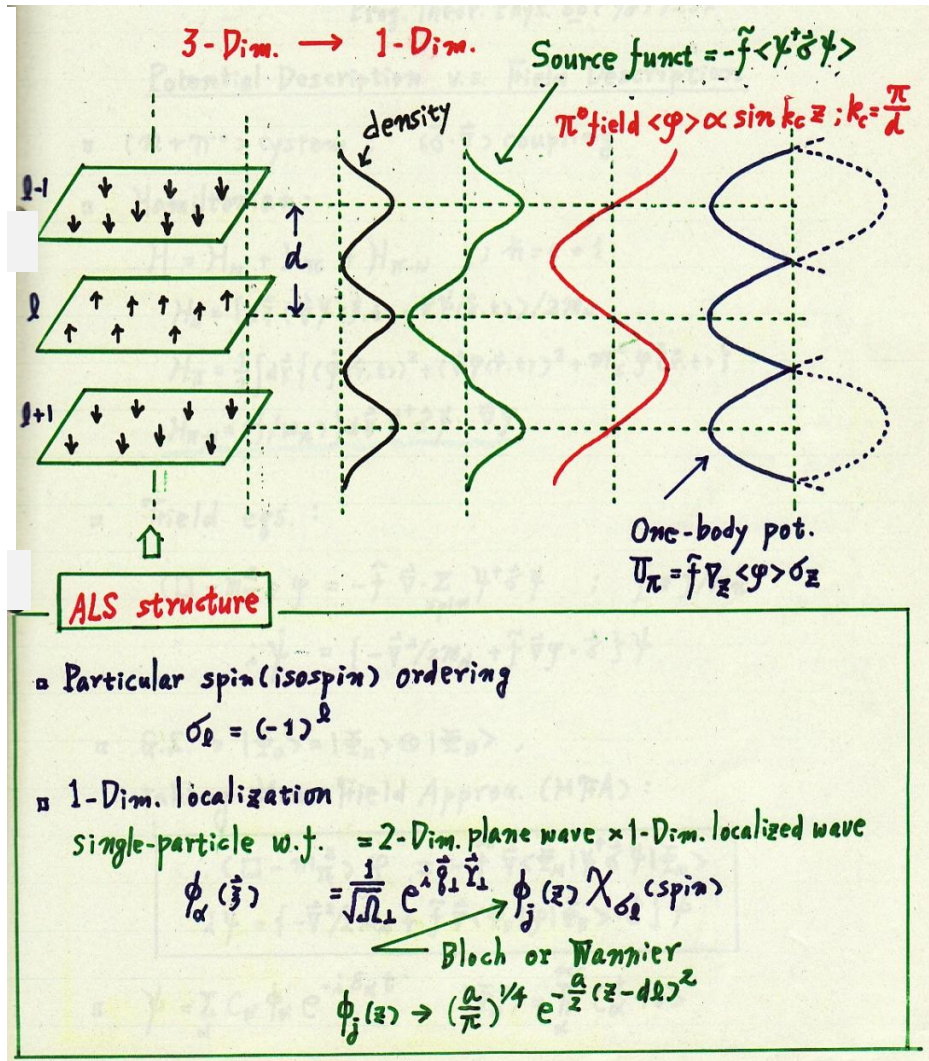 3-Dim. → 1-Dim.
Source funct = -f̃<ψ⁺σ⃗ψ>
density
π° field <φ> ∝ sin k_c z ; k_c = π/d
l-1
d
l
l+1
One-body pot.
U_π = f̃ ∇_z <φ> σ_z
ALS structure
▫ Particular spin(isospin) ordering
σ_l = (-1)^l
▫ 1-Dim. localization
single-particle w.f. = 2-Dim. plane wave × 1-Dim. localized wave
ϕ_α(ξ⃗) = 1/√Ω_⊥ e^{i q⃗_⊥ r⃗_⊥} ϕ_j(z) χ_{σ_l}(spin)
Bloch or Wannier
ϕ_j(z) → (a/π)^{1/4} e^{-a/2 (z-dl)²}